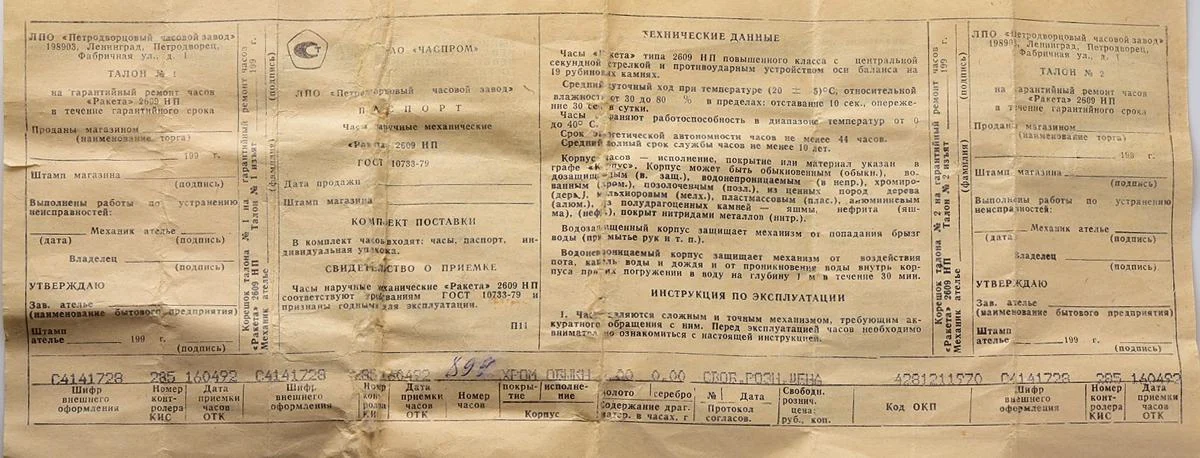 ЛПО «Петродворцовый часовой завод»
198903, Ленинград, Петродворец,
Фабричная ул., д. 1
ТАЛОН № 1
на гарантийный ремонт часов
«Ракета» 2609 НП
в течение гарантийного срока
Проданы магазином
(наименование торга)
199 г.
Штамп магазина
(подпись)
Выполнены работы по устранению
неисправностей:
Механик ателье
(дата) (подпись)
Владелец
(подпись)
УТВЕРЖДАЮ
Зав. ателье
(наименование бытового предприятия)
Штамп
ателье 199 г.
(подпись)
Корешок талона № 1 на гарантийный ремонт часов
«Ракета» 2609 НП Талон № 1 изъят 199 г.
Механик ателье
(фамилия) (подпись)
АО «ЧАСПРОМ»
ЛПО «Петродворцовый часовой завод»
ПАСПОРТ
Часы наручные механические
«Ракета» 2609 НП
ГОСТ 10733-79
Дата продажи
Штамп магазина
КОМПЛЕКТ ПОСТАВКИ
В комплект часов входят: часы, паспорт, ин-
дивидуальная упаковка.
СВИДЕТЕЛЬСТВО О ПРИЕМКЕ
Часы наручные механические «Ракета» 2609 НП
соответствуют требованиям ГОСТ 10733-79 и
признаны годными для эксплуатации.
П14
ТЕХНИЧЕСКИЕ ДАННЫЕ
Часы «Ракета» типа 2609 НП повышенного класса с центральной
секундной стрелкой и противоударным устройством оси баланса на
19 рубиновых камнях.
Средний суточный ход при температуре (20 ± 5)°С, относительной
влажности от 30 до 80 % в пределах: отставание 10 сек., опереже-
ние 30 сек. в сутки.
Часы сохраняют работоспособность в диапазоне температур от 0
до 40° С.
Срок энергетической автономности часов не менее 44 часов.
Средний полный срок службы часов не менее 10 лет.
Корпус часов — исполнение, покрытие или материал указан в
графе «Корпус». Корпус может быть обыкновенный (обыкн.), во-
дозащищенным (в. защ.), водонепроницаемым (в непр.), хромиро-
ванным (хром.), позолоченым (позл.), из ценных пород дерева
(дер.), мельхиоровым (мелх.), пластмассовым (плас.), алюминиевым
(алюм.), из полудрагоценных камней — яшмы, нефрита (яш-
ма), (нефр.), покрыт нитридами металлов (нитр.).
Водозащищенный корпус защищает механизм от попадания брызг
воды (при мытье рук и т. п.).
Водонепроницаемый корпус защищает механизм от воздействия
пота, капель воды и дождя и от проникновения воды внутрь кор-
пуса при их погружении в воду на глубину 1 м в течение 30 мин.
ИНСТРУКЦИЯ ПО ЭКСПЛУАТАЦИИ
1. Часы являются сложным и точным механизмом, требующим ак-
куратного обращения с ним. Перед эксплуатацией часов необходимо
внимательно ознакомиться с настоящей инструкцией.
Корешок талона № 2 на гарантийный ремонт часов
«Ракета» 2609 НП Талон № 2 изъят 199 г.
Механик ателье
(фамилия) (подпись)
ЛПО «Петродворцовый часовой завод»
198903, Ленинград, Петродворец,
Фабричная ул., д. 1
ТАЛОН № 2
на гарантийный ремонт часов
«Ракета» 2609 НП
в течение гарантийного срока
Проданы магазином
(наименование торга)
199 г.
Штамп магазина
(подпись)
Выполнены работы по устранению
неисправностей:
Механик ателье
(дата) (подпись)
Владелец
(подпись)
УТВЕРЖДАЮ
Зав. ателье
(наименование бытового предприятия)
Штамп
ателье 199 г.
(подпись)
С4141728 285 160492 С4141728 285 160492 899 ХРОМ ОБЫКН 0.00 0.00 СВОБ.РОЗН.ЦЕНА 4281211970 С4141728 285 160492
Шифр внешнего оформления
Номер контролера КИС
Дата приемки часов ОТК
Шифр внешнего оформления
Номер контролера КИС
Дата приемки часов ОТК
Номер часов
покрытие
исполнение
Корпус
золото серебро
Содержание драг. матер. в часах, г
№ Дата
Протокол согласов.
Свободн. рознич. цена: руб., коп.
Код ОКП
Шифр внешнего оформления
Номер контролера КИС
Дата приемки часов ОТК